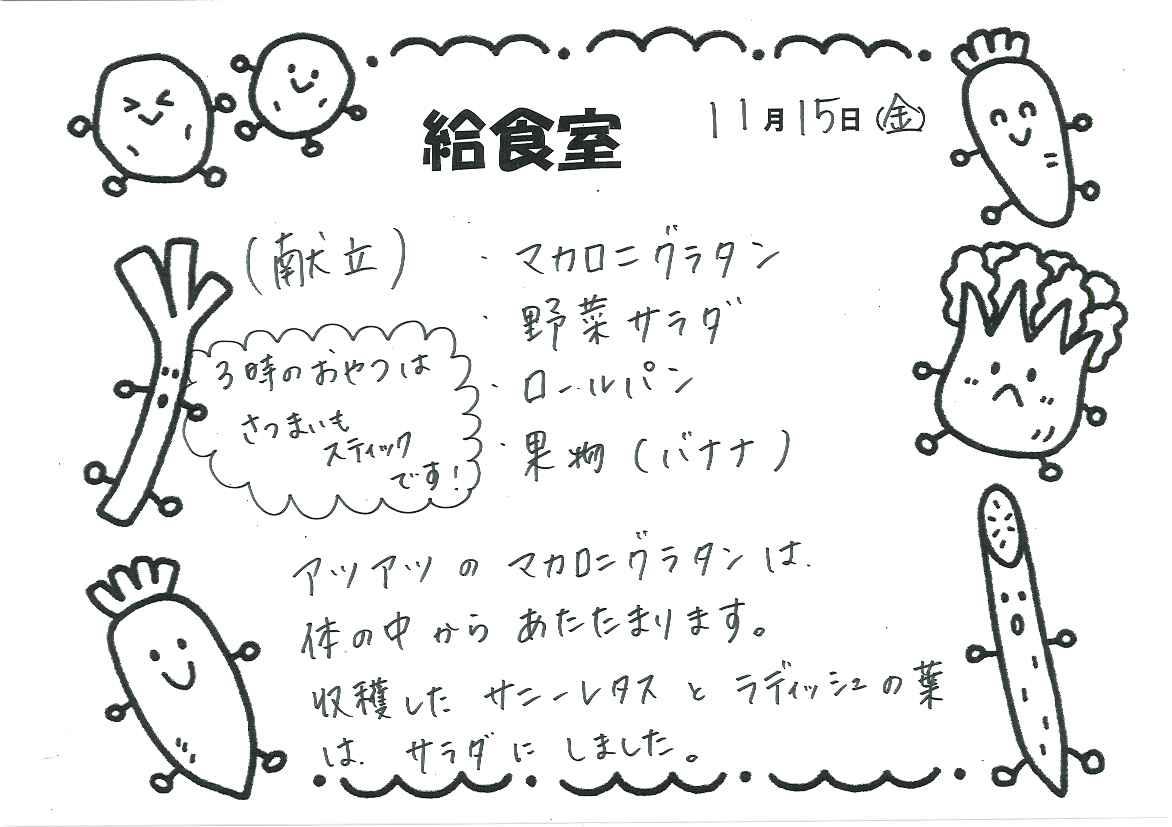 給食室
11月15日(金)
(献立)
・マカロニグラタン
・野菜サラダ
・ロールパン
・果物(バナナ)
3時のおやつは
さつまいも
スティック
です!
アツアツのマカロニグラタンは、
体の中からあたたまります。
収穫したサニーレタスとラディッシュの葉
は、サラダにしました。